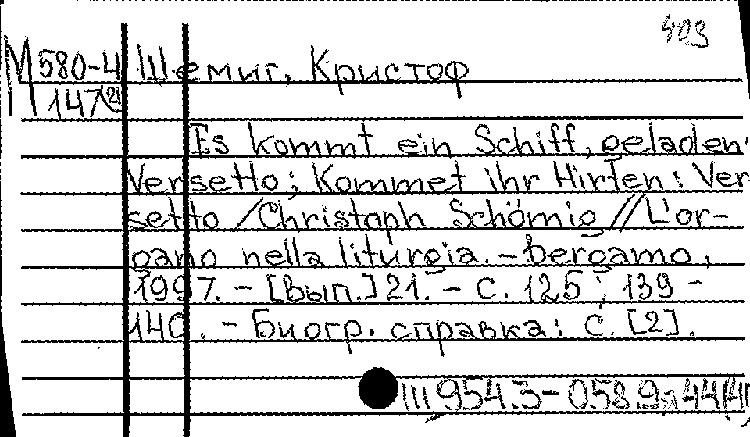 403
М 580-4 Шемиг, Кристоф
147(21)
Es kommt ein Schiff, geladen:
Versetto; Kommet ihr Hirten: Ver
setto / Christoph Schömig // L'or-
gano nella liturgia. - Bergamo,
1997. - [Вып.] 21. - С. 125; 139 -
140. - Биогр. справка: с. [2].
III 954.3-058.9